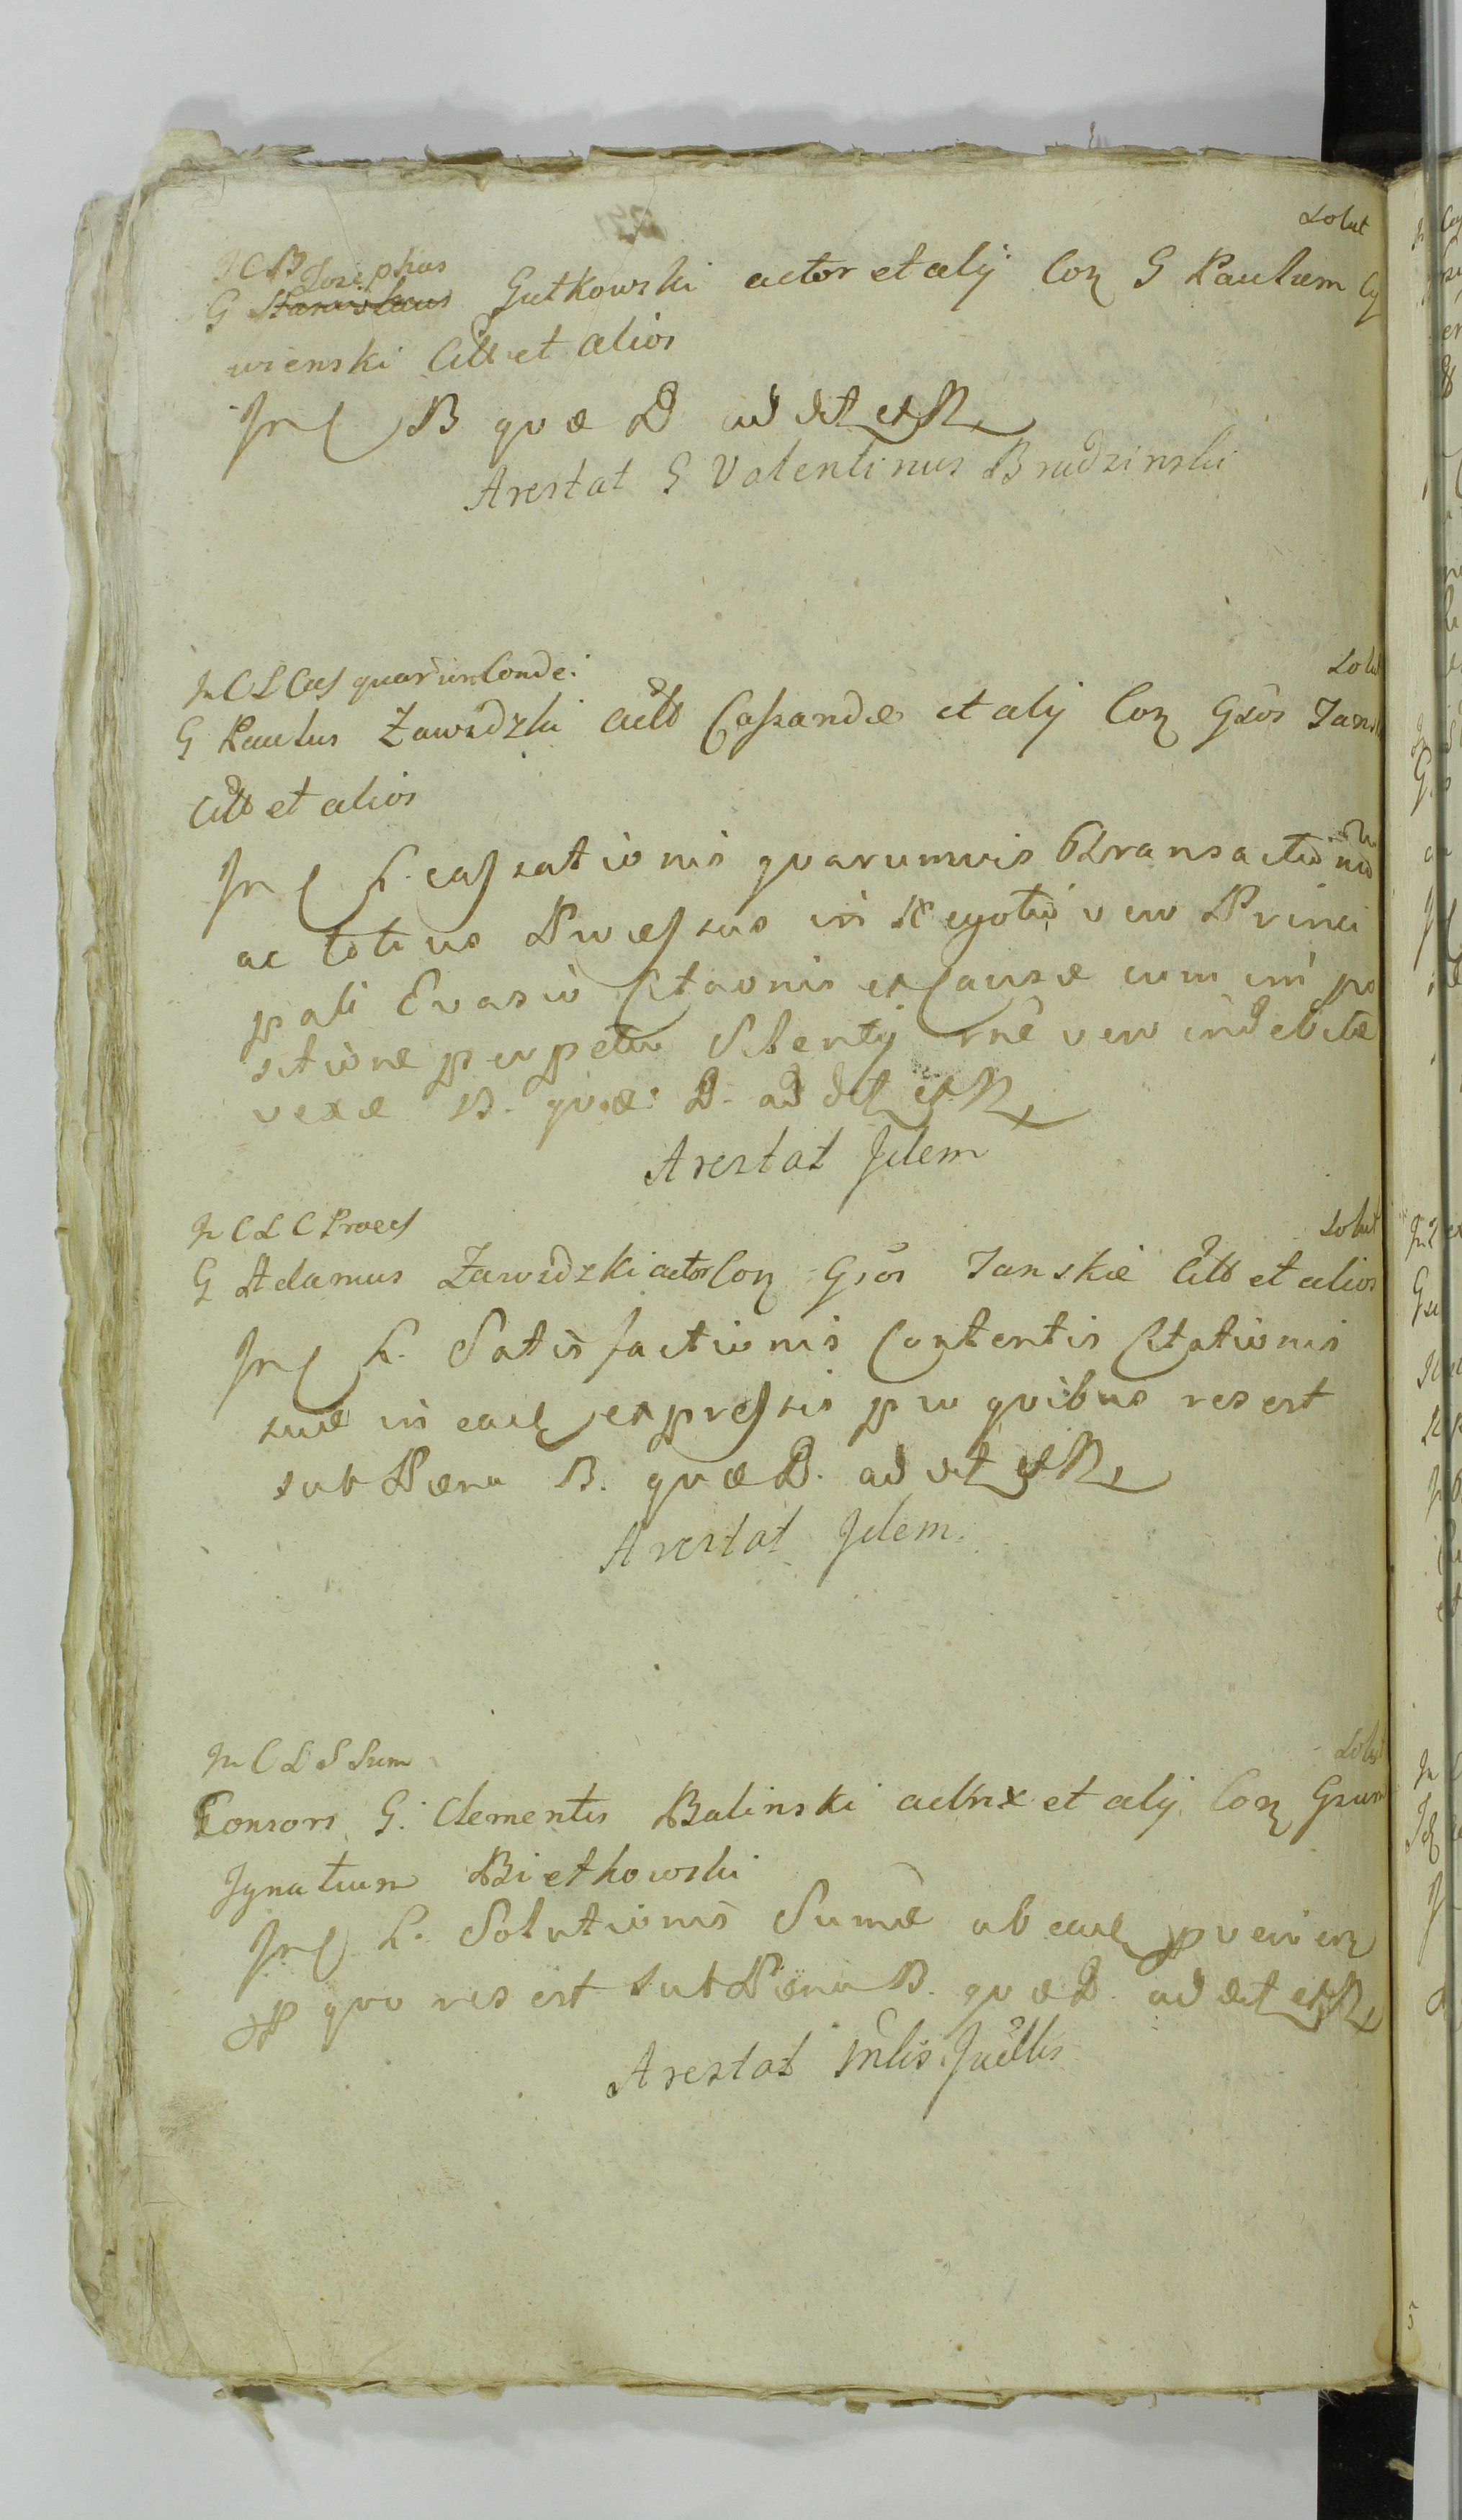 Solut
I C B Josephus
G Stanislaus Gutkowski actor et alij Con G Paulum Cy
wienski Citt et alios
In C B quæ D ad det et R
Arestat G Valentinus Brudzinski
In C L Cas quar un Conde: Solut
G Paulus Zawidzki Actt Cassandæ et alij Con Gsos Jans
Citt et alios
In C L. cassationis quarumvis Transactionu
ac totius Processus in Negotio vero Princi
pali Evasio Citaonis et Causæ cum im po
sitione perpetui Silentij rne vero indebitæ
vexæ B. quæ D. ad det et R
Arestat Idem
In C L C Process Solut
G Adamus Zawidzki actor Con Gsos Janskie Citt et alios
In C L. Satisfactionis Contentis Citationis
suæ in eadem expressis pro quibus res est
sub Pæna B. quæ D. ad det et R
Arestat Idem.
In C L S Sum Solut
Consors G. Clementis Balinski actrix et alij Con Gsum
Ignatium Bietkowski
In C L. Solutionis Sumæ ab eadem
pro quo res est sub Pæna B. quæ D. ad det et R
Arestat Mlis Judllis